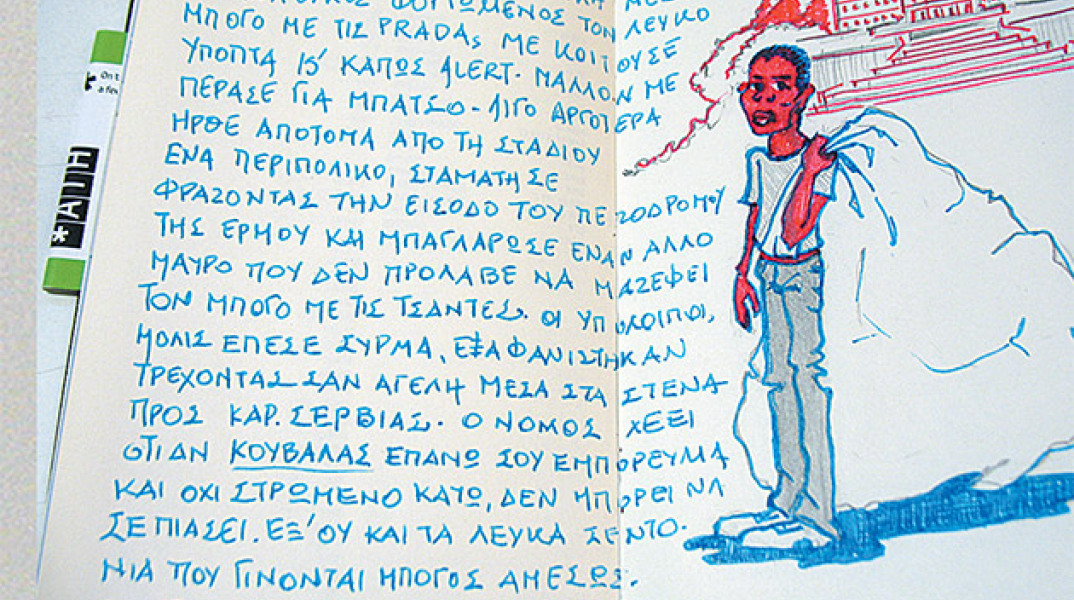 ΦΟΡΤΩΜΕΝΟΣ ΤΟΝ ΛΕΥΚΟ
ΜΠΟΓΟ ΜΕ ΤΙΣ PRADAs ΜΕ ΚΟΙΤΟΥΣΕ
ΥΠΟΠΤΑ ΙΣ' ΚΑΠΩΣ ALERT. ΜΑΛΛΟΝ ΜΕ
ΠΕΡΑΣΕ ΓΙΑ ΜΠΑΤΣΟ - ΛΙΓΟ ΑΡΓΟΤΕΡΑ
ΗΡΘΕ ΑΠΟΤΟΜΑ ΑΠΟ ΤΗ ΣΤΑΔΙΟΥ
ΕΝΑ ΠΕΡΙΠΟΛΙΚΟ, ΣΤΑΜΑΤΗΣΕ
ΦΡΑΖΟΝΤΑΣ ΤΗΝ ΕΙΣΟΔΟ ΤΟΥ ΠΕΖΟΔΡΟΜΟΥ
ΤΗΣ ΕΡΜΟΥ ΚΑΙ ΜΠΑΓΛΑΡΩΣΕ ΕΝΑΝ ΑΛΛΟ
ΜΑΥΡΟ ΠΟΥ ΔΕΝ ΠΡΟΛΑΒΕ ΝΑ ΜΑΖΕΨΕΙ
ΤΟΝ ΜΠΟΓΟ ΜΕ ΤΙΣ ΤΣΑΝΤΕΣ. ΟΙ ΥΠΟΛΟΙΠΟΙ,
ΜΟΛΙΣ ΕΠΕΣΕ ΣΥΡΜΑ, ΕΞΑΦΑΝΙΣΤΗΚΑΝ
ΤΡΕΧΟΝΤΑΣ ΣΑΝ ΑΓΕΛΗ ΜΕΣΑ ΣΤΑ ΣΤΕΝΑ
ΠΡΟΣ ΚΑΡ. ΣΕΡΒΙΑΣ. Ο ΝΟΜΟΣ ΛΕΕΙ
ΟΤΙ ΑΝ ΚΟΥΒΑΛΑΣ ΕΠΑΝΩ ΣΟΥ ΕΜΠΟΡΕΥΜΑ
ΚΑΙ ΟΧΙ ΣΤΡΩΜΕΝΟ ΚΑΤΩ, ΔΕΝ ΜΠΟΡΕΙ ΝΑ
ΣΕ ΠΙΑΣΕΙ. ΕΞ' ΟΥ ΚΑΙ ΤΑ ΛΕΥΚΑ ΣΕΝΤΟ-
ΝΙΑ ΠΟΥ ΓΙΝΟΝΤΑΙ ΜΠΟΓΟΣ ΑΜΕΣΩΣ.